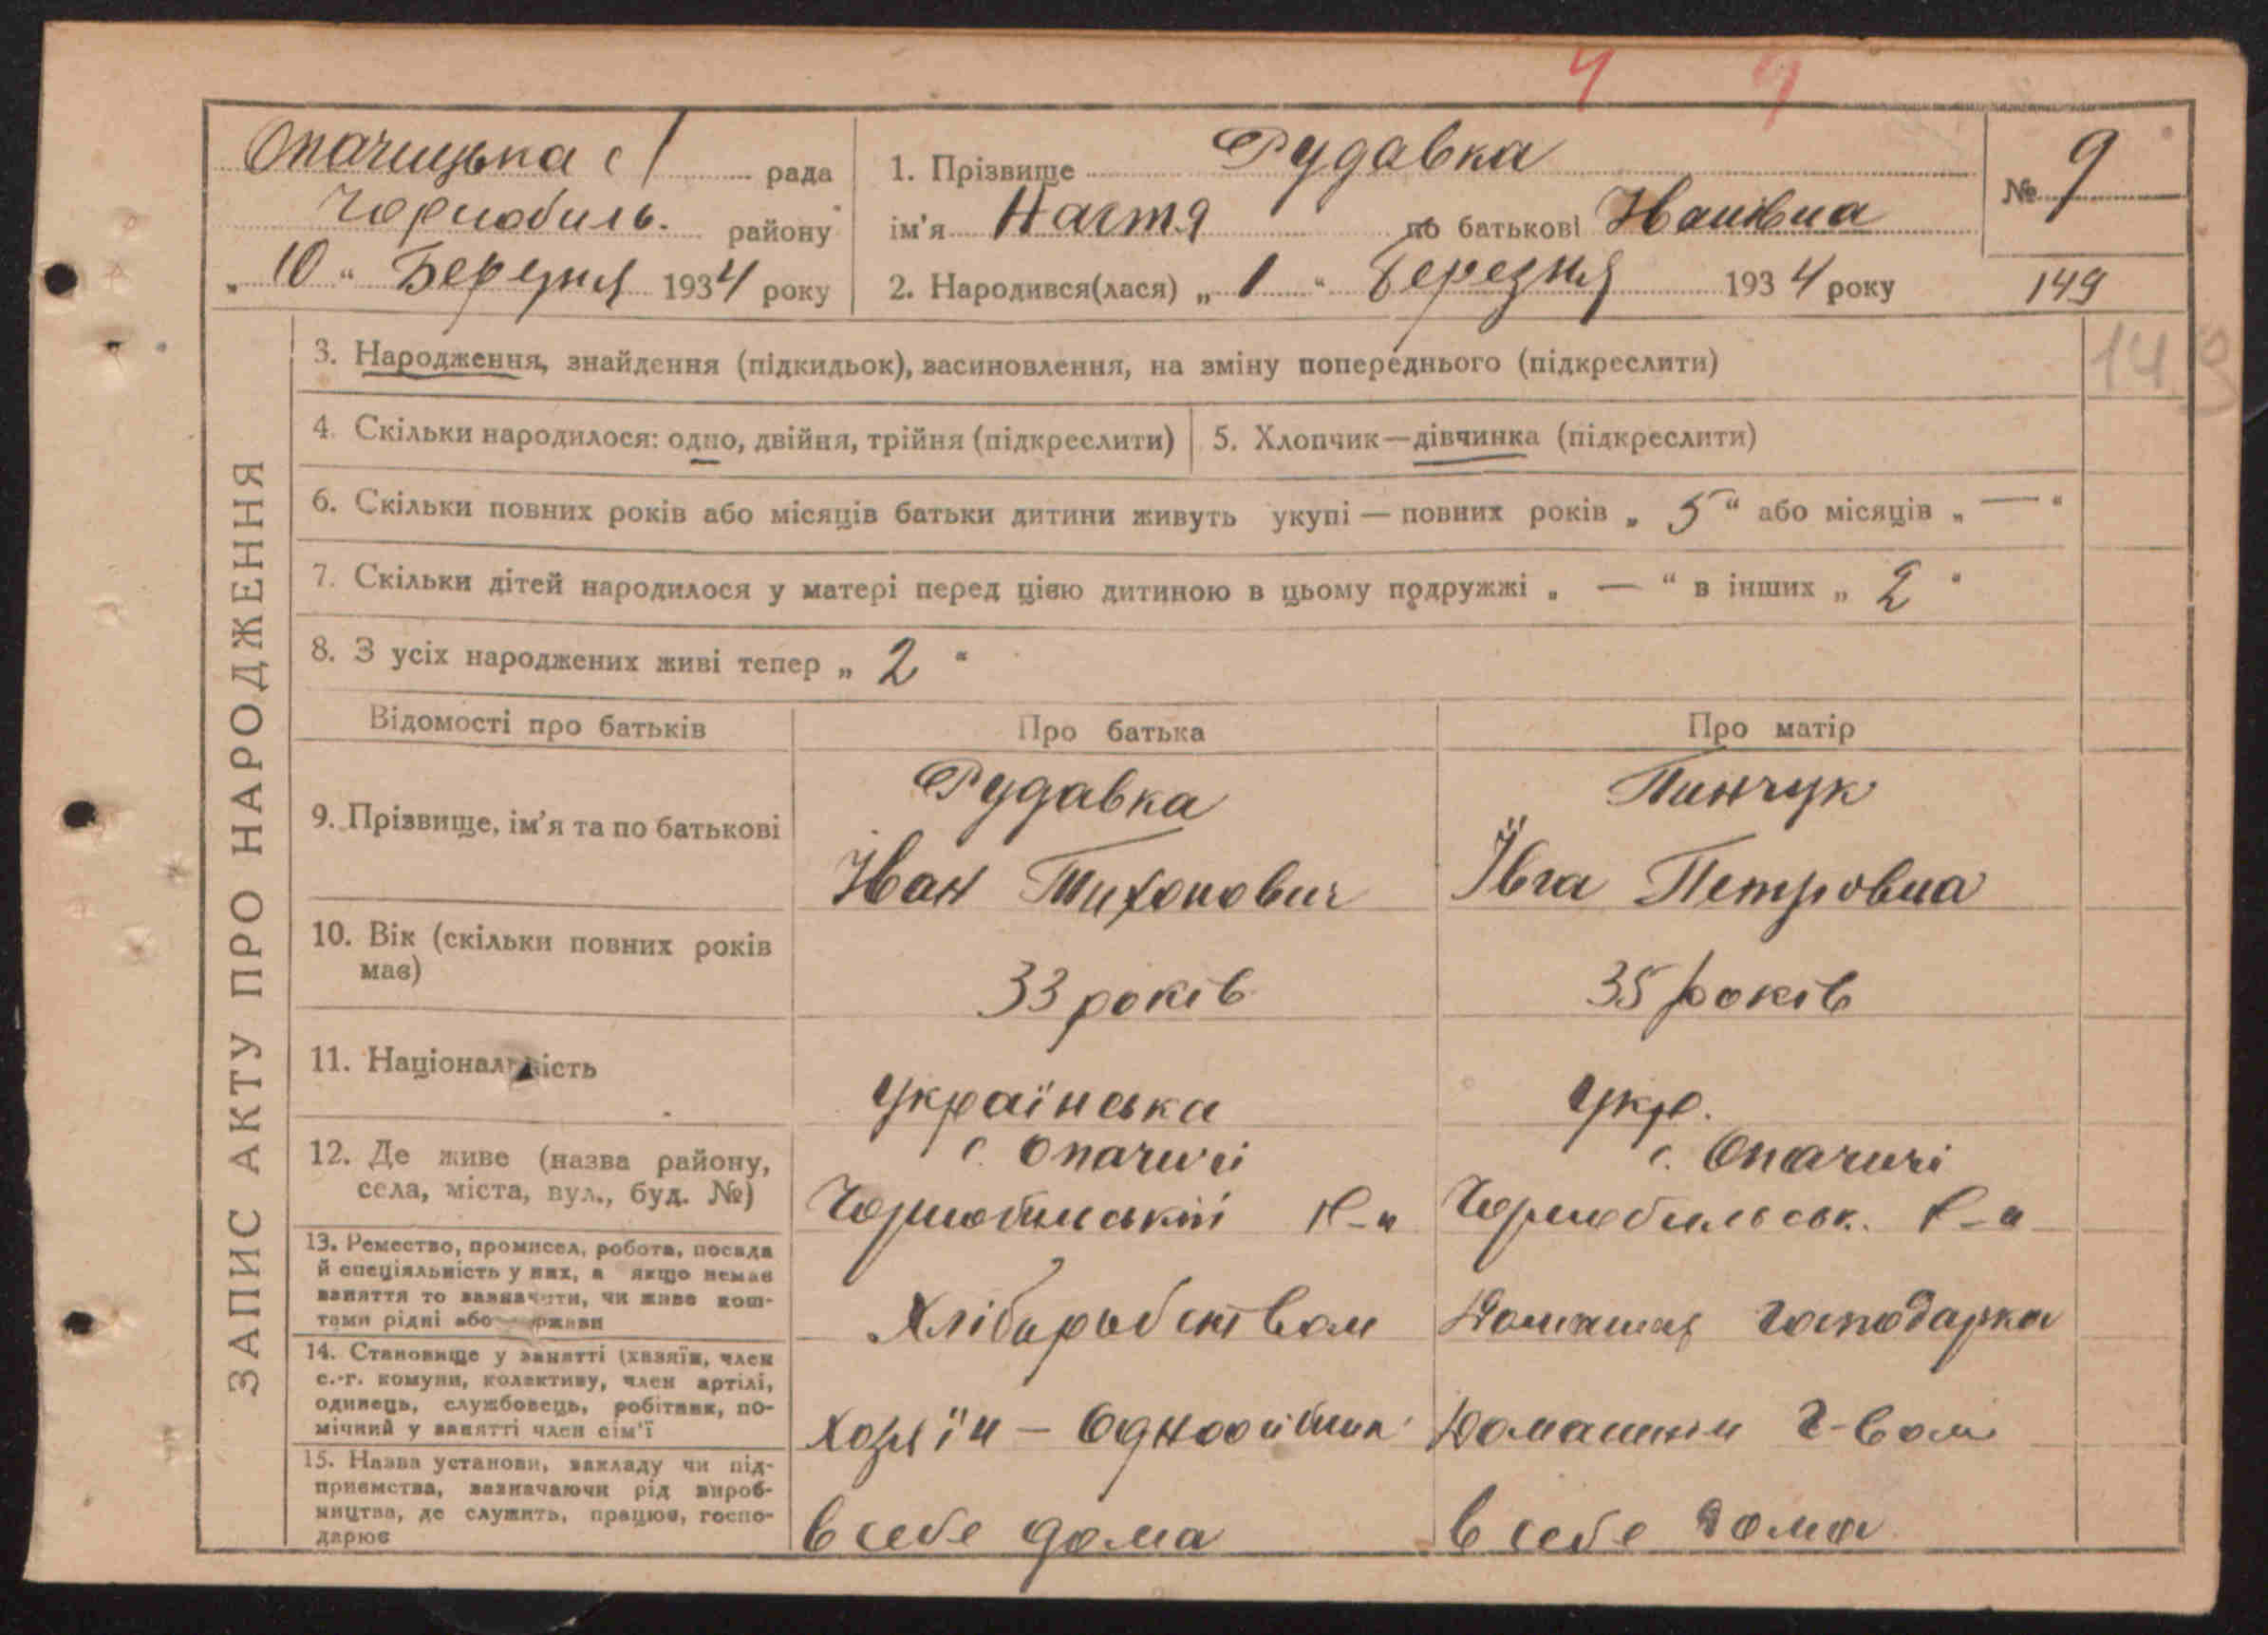 Опачицька с/ рада
Чорнобиль. району
„ 10 “ Березня 1934 року
1. Прізвище Рудавка
ім'я Настя по батькові Іванівна
2. Народився(лася) „ 1 “ Березня 1934 року
№ 9
149
149
ЗАПИС АКТУ ПРО НАРОДЖЕННЯ
3. Народження, знайдення (підкидьок), васиновлення, на зміну попереднього (підкреслити)
4. Скільки народилося: одно, двійня, трійня (підкреслити)
5. Хлопчик—дівчинка (підкреслити)
6. Скільки повних років або місяців батьки дитини живуть укупі — повних років „ 5 “ або місяців „ — “
7. Скільки дітей народилося у матері перед цією дитиною в цьому подружжі „ — “ в інших „ 2 “
8. З усіх народжених живі тепер „ 2 “
Відомості про батьків
Про батька
Про матір
9. Прізвище, ім'я та по батькові
Рудавка
Іван Тихонович
Пинчук
Ївга Петровна
10. Вік (скільки повних років
має)
33 років
35 років
11. Національність
Українська
Укр.
12. Де живе (назва району,
села, міста, вул., буд. №)
с. Опачичі
Чорнобильській р-н
с. Опачичі
Чорнобильськ. р-н
13. Ремество, промисел, робота, посада
й спеціяльність у них, а якщо немає
заняття то зазначити, чи живе кош-
тами рідні або держави
Хліборобством
Домашня господарка
14. Становище у занятті (хазяїн, член
с.-г. комуни, колективу, член артілі,
одинець, службовець, робітник, по-
мічний у занятті член сім'ї
Хозяїн —
Домашнім г-вом
15. Назва установи, закладу чи під-
приємства, зазначаючи рід вироб-
ництва, де служить, працює, госпо-
дарює
в себе дома
в себе дома